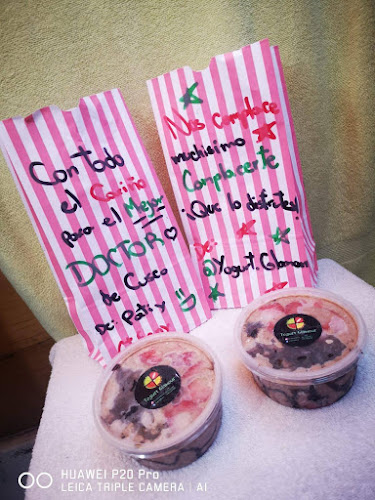 Con todo
el Cariño
para el Mejor
DOCTOR
de Cusco
De: Patty
Nos complace
muchísimo
Complacerte
¡Que lo disfrutes!
De:
@Yogurt.Glamour
Yogurt Glamour
HUAWEI P20 Pro
LEICA TRIPLE CAMERA | AI